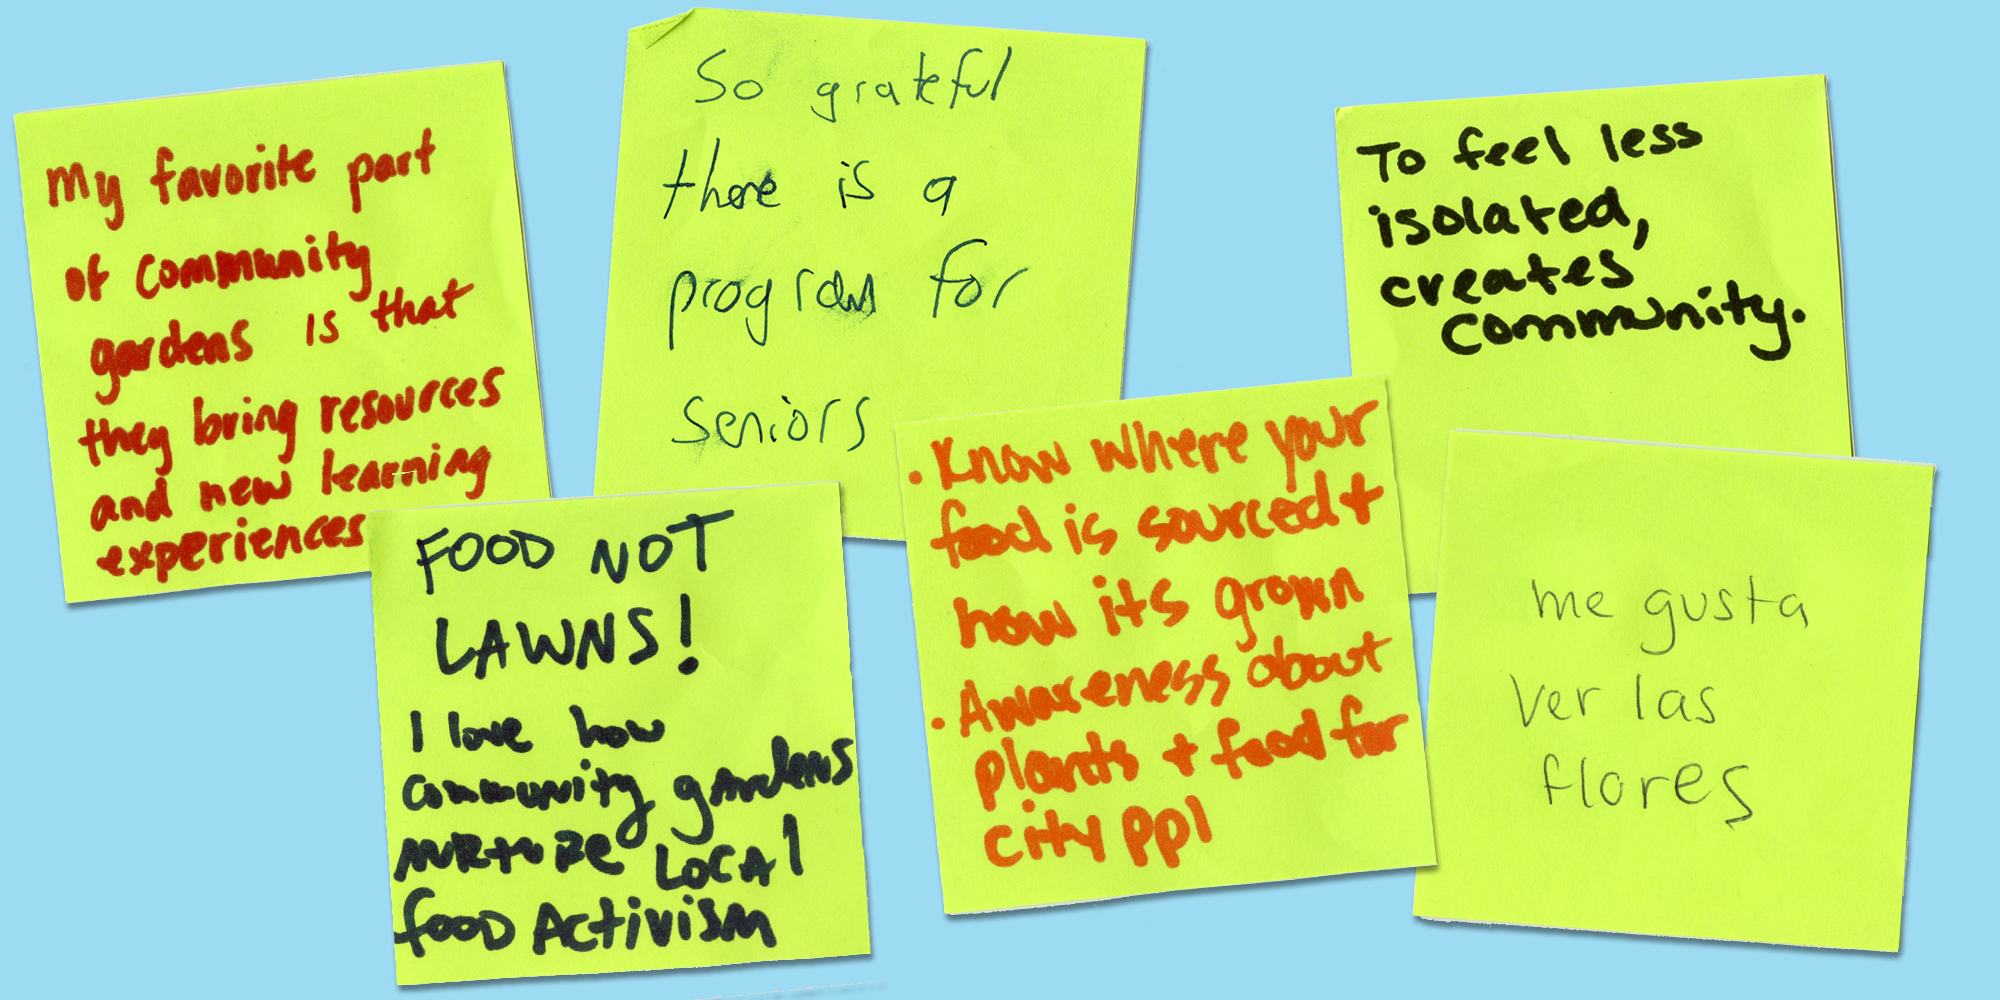 My favorite part
of community
gardens is that
they bring resources
and new learning
experiences
So grateful
there is a
program for
seniors
To feel less
isolated,
creates
community.
FOOD NOT
LAWNS!
I love how
community gardens
nurture local
food activism
• Know where your
food is sourced +
how its grown
• Awareness about
plants + food for
city ppl
me gusta
ver las
flores